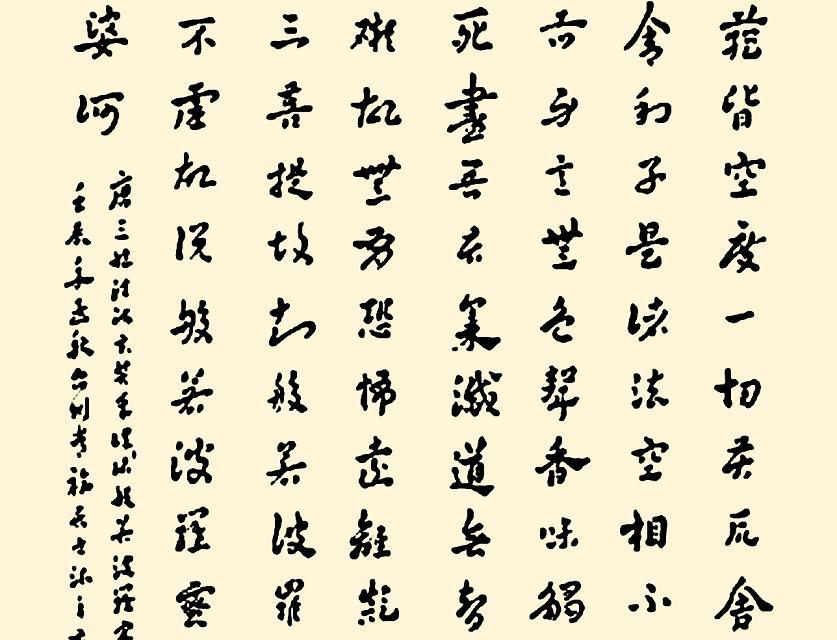 蘊皆空度一切苦厄舍
舍利子是諸法空相不
舌身意無色聲香味觸
死盡無苦集滅道無智
礙故無有恐怖遠離顛
三菩提故知般若波羅
不虛故說般若波羅蜜
娑訶
唐三藏法師玄奘奉詔譯般若波羅蜜
壬辰年